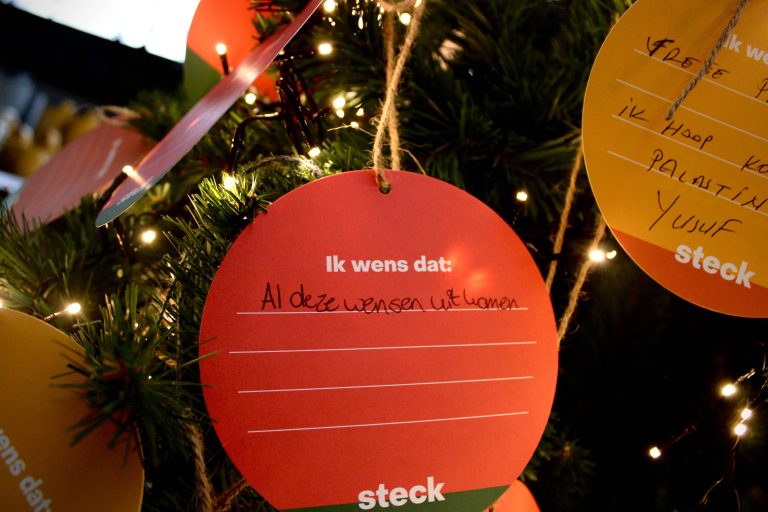 Ik wens dat:
Al deze wensen uitkomen
steck
k we
VREDE
ik HOOP
PALASTIN
YUSUF
steck
wens dat: